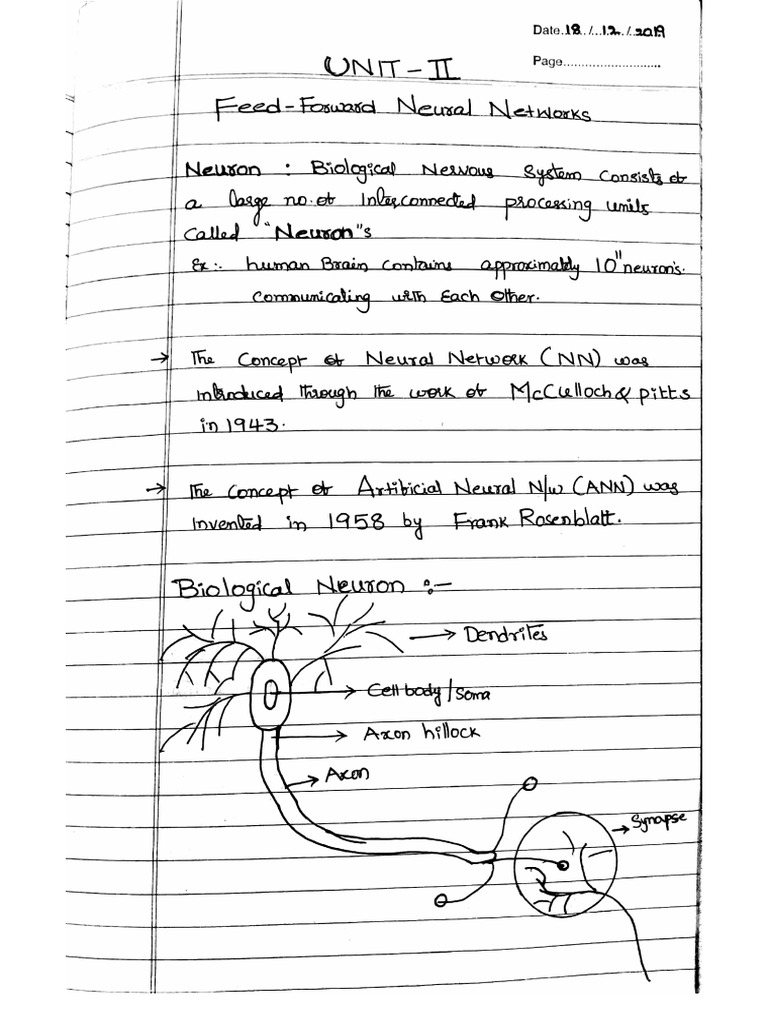 Date.18../...12../..2019
Page...........................
UNIT - II
Feed-Forward Neural Networks
Neuron : Biological Nervous System consists of
a large no. of Interconnected processing units
called "Neuron"s
Ex:- human Brain contains approximately 10¹¹ neuron's.
communicating with Each Other.
→ The Concept of Neural Network (NN) was
introduced through the work of McCulloch & pitts
in 1943.
→ The Concept of Artificial Neural N/w (ANN) was
Invented in 1958 by Frank Rosenblatt.
Biological Neuron :-
→ Dendrites
→ Cell body/Soma
→ Axon hillock
→ Axon
→ Synapse